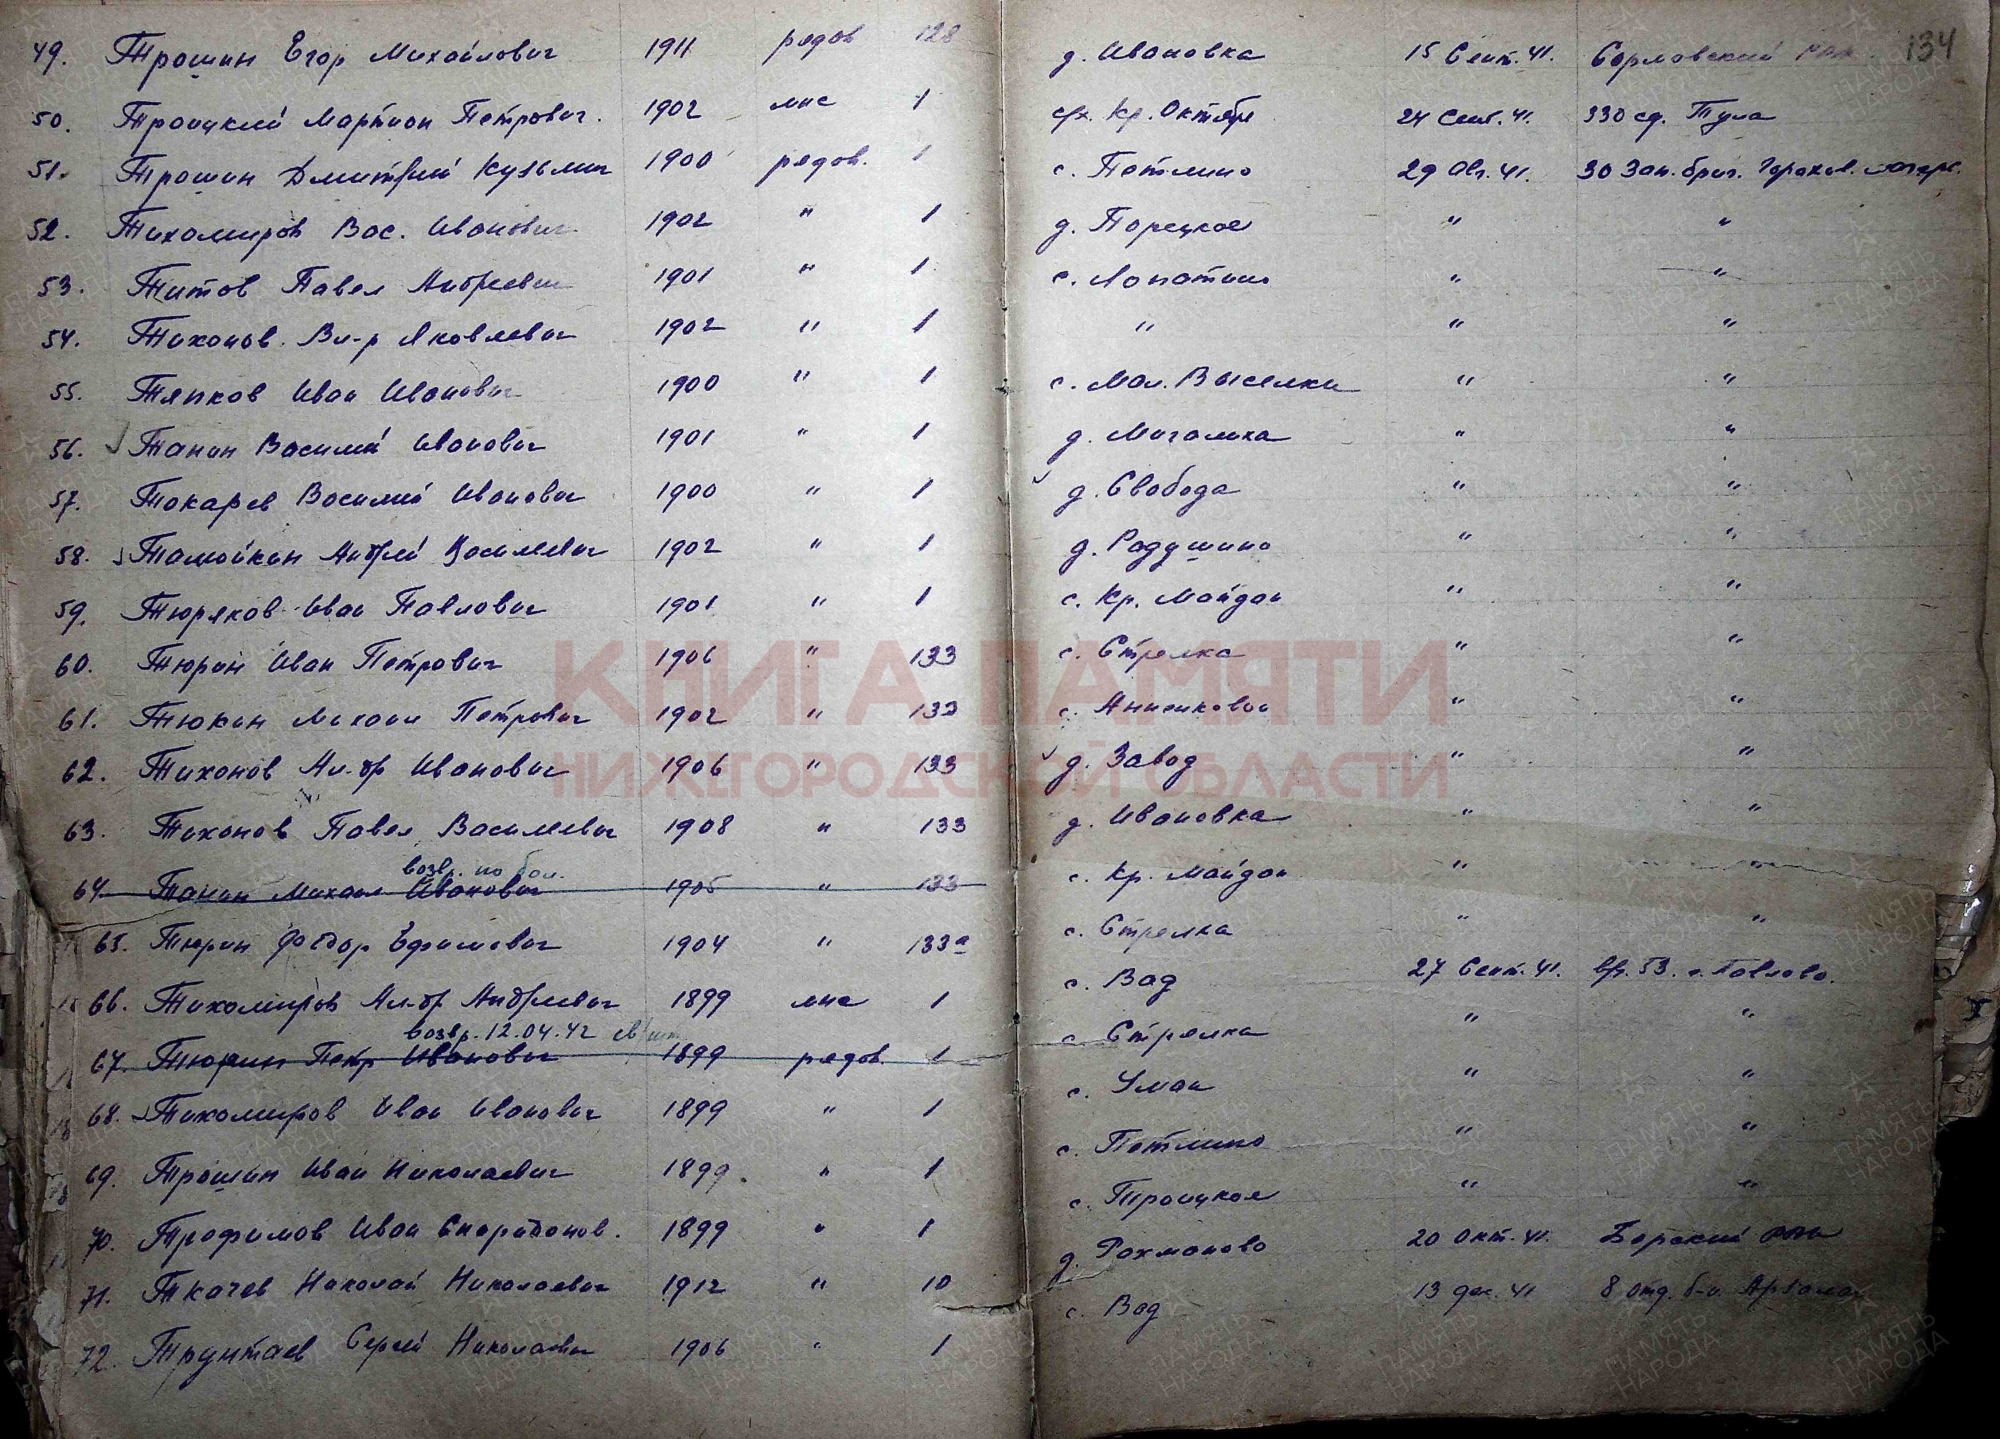 134
49. Трошин Егор Михайлович 1911 рядов 128 д. Ивановка 15 Сент. 41. Сормовский
50. Троицкий Мартион Петрович. 1902 мнс 1 с/х. Кр. Октябрь 24 Сент. 41. 330 сд. Тула
51. Трошин Дмитрий Кузьмич 1900 рядов. 1 с. Петлино 29 Авг. 41. 30 Зап. бриг. Горохов. лагеря.
52. Тихомиров Вас. Иванович 1902 " 1 д. Порецкое " "
53. Титов Павел Андреевич 1901 " 1 с. Лопатино " "
54. Тихонов Вл-р Яковлевич 1902 " 1 " " "
55. Тяпков Иван Иванович 1900 " 1 с. Мал. Выселки " "
56. Танин Василий Иванович 1901 " 1 д. Мигалиха " "
57. Токарев Василий Иванович 1900 " 1 д. Свобода " "
58. Тамойкин Андрей Василевич 1902 " 1 д. Радушино " "
59. Тюряков Иван Павлович 1901 " 1 с. Кр. Майдан " "
60. Тюрин Иван Петрович 1906 " 133 с. Стрелка " "
КНИГА ПАМЯТИ
61. Тюкин Михаил Петрович 1902 " 133 с. " "
62. Тихонов Ал-др Иванович 1906 " 133 д. Завод " "
НИЖЕГОРОДСКОЙ ОБЛАСТИ
63. Тихонов Павел Василевич 1908 " 133 д. Ивановка " "
возвр. по бол.
64. Танин Михаил Иванович 1905 " 133 с. Кр. Майдан " "
65. Тюрин Федор Ефимович 1904 " 133а с. Стрелка " "
66. Тихомиров Ал-др Андреевич 1899 мнс 1 с. Вад 27 Сент. 41. вр. 53. г. Павлово.
возвр. 12.04.42
67. Тюрин Петр Иванович 1899 рядов. 1 с. Стрелка " "
68. Тихомиров Иван Иванович 1899 " 1 с. Умай " "
69. Трошин Иван Николаевич 1899 " 1 с. Петлино " "
70. Трофимов Иван Спиридонов. 1899 " 1 с. Троицкое " "
71. Ткачев Николай Николаевич 1912 " 10 д. Рахманово 20 окт. 41. Борский
72. Трунтаев Сергей Николаевич 1906 " 1 с. Вад 13 дек. 41 8 отд. б-н.
ПАМЯТЬ НАРОДА